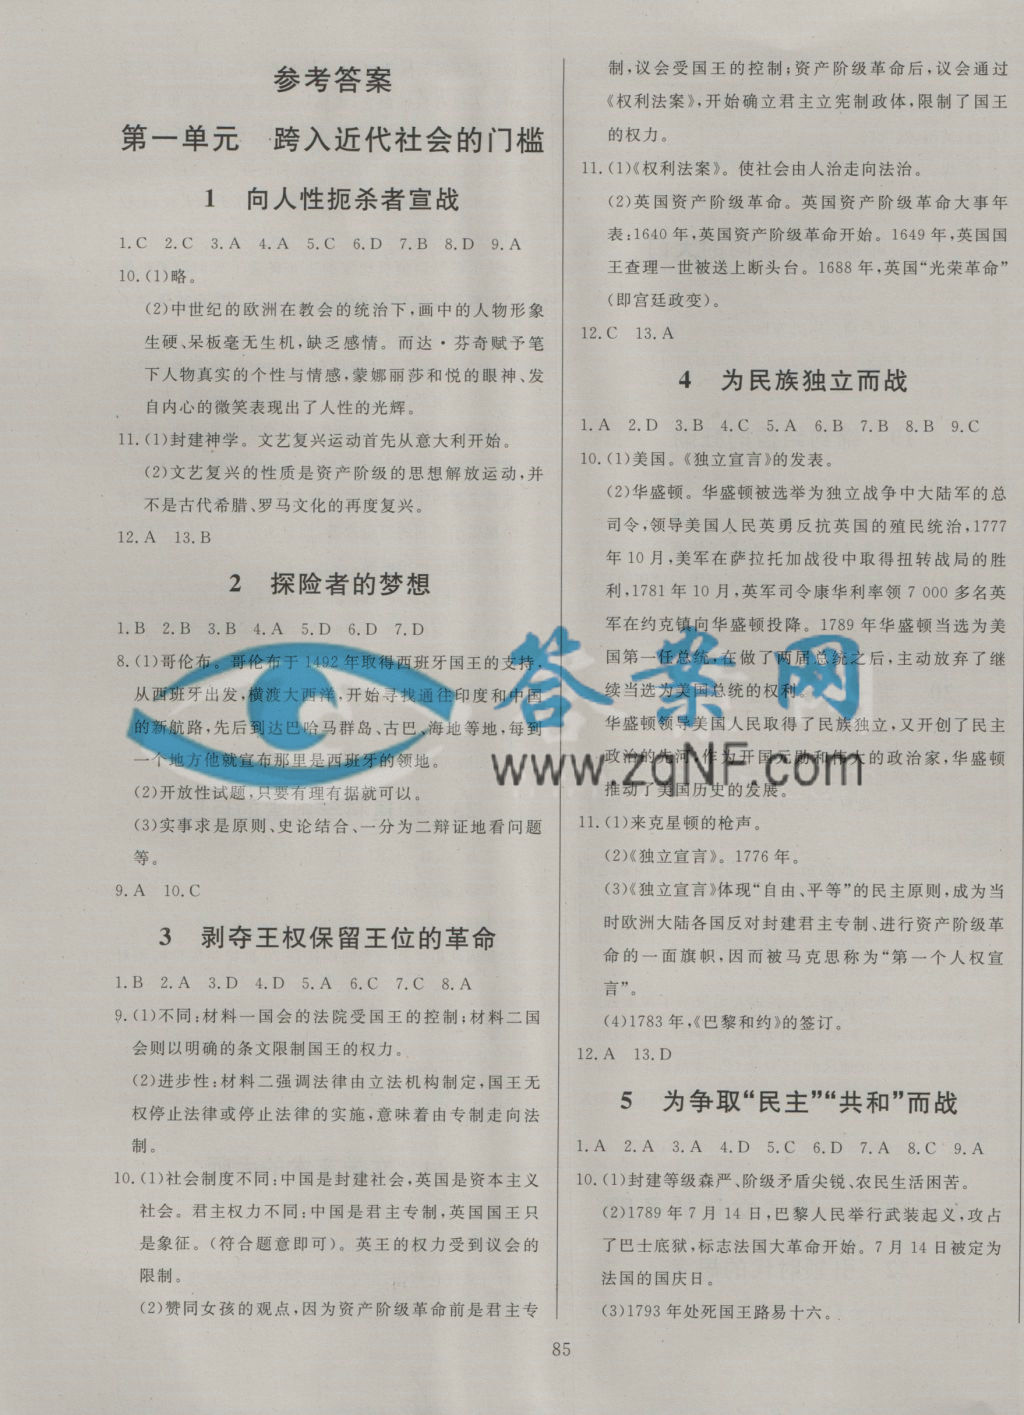 参考答案
第一单元　跨入近代社会的门槛
1　向人性扼杀者宣战
1.C　2.C　3.A　4.A　5.C　6.D　7.B　8.D　9.A
10.(1)略。
(2)中世纪的欧洲在教会的统治下,画中的人物形象
生硬、呆板毫无生机,缺乏感情。而达·芬奇赋予笔
下人物真实的个性与情感,蒙娜丽莎和悦的眼神、发
自内心的微笑表现出了人性的光辉。
11.(1)封建神学。文艺复兴运动首先从意大利开始。
(2)文艺复兴的性质是资产阶级的思想解放运动,并
不是古代希腊、罗马文化的再度复兴。
12.A　13.B
2　探险者的梦想
1.B　2.B　3.B　4.A　5.D　6.D　7.D
8.(1)哥伦布。哥伦布于1492年取得西班牙国王的支持,
从西班牙出发,横渡大西洋,开始寻找通往印度和中国
的新航路,先后到达巴哈马群岛、古巴、海地等地,每到
一个地方他就宣布那里是西班牙的领地。
(2)开放性试题,只要有理有据就可以。
(3)实事求是原则、史论结合、一分为二辩证地看问题
等。
9.A　10.C
3　剥夺王权保留王位的革命
1.B　2.A　3.D　4.D　5.A　6.C　7.C　8.A
9.(1)不同:材料一国会的法院受国王的控制;材料二国
会则以明确的条文限制国王的权力。
(2)进步性:材料二强调法律由立法机构制定,国王无
权停止法律或停止法律的实施,意味着由专制走向法
制。
10.(1)社会制度不同:中国是封建社会,英国是资本主义
社会。君主权力不同:中国是君主专制,英国国王只
是象征。(符合题意即可)。英王的权力受到议会的
限制。
(2)赞同女孩的观点,因为资产阶级革命前是君主专
制,议会受国王的控制;资产阶级革命后,议会通过
《权利法案》,开始确立君主立宪制政体,限制了国王
的权力。
11.(1)《权利法案》。使社会由人治走向法治。
(2)英国资产阶级革命。英国资产阶级革命大事年
表:1640年,英国资产阶级革命开始。1649年,英国国
王查理一世被送上断头台。1688年,英国“光荣革命”
(即宫廷政变)。
12.C　13.A
4　为民族独立而战
1.A　2.D　3.B　4.C　5.A　6.B　7.B　8.B　9.C
10.(1)美国。《独立宣言》的发表。
(2)华盛顿。华盛顿被选举为独立战争中大陆军的总
司令,领导美国人民英勇反抗英国的殖民统治,1777
年10月,美军在萨拉托加战役中取得扭转战局的胜
利,1781年10月,英军司令康华利率领7 000多名英
军在约克镇向华盛顿投降。1789年华盛顿当选为美
国第一任总统,在做了两届总统之后,主动放弃了继
续当选为美国总统的权利。
华盛顿领导美国人民取得了民族独立,又开创了民主
政治的先河,作为开国元勋和伟大的政治家,华盛顿
推动了美国历史的发展。
11.(1)来克星顿的枪声。
(2)《独立宣言》。1776年。
(3)《独立宣言》体现“自由、平等”的民主原则,成为当
时欧洲大陆各国反对封建君主专制、进行资产阶级革
命的一面旗帜,因而被马克思称为“第一个人权宣
言”。
(4)1783年,《巴黎和约》的签订。
12.A　13.D
5　为争取“民主”“共和”而战
1.A　2.A　3.A　4.D　5.C　6.D　7.A　8.C　9.A
10.(1)封建等级森严、阶级矛盾尖锐、农民生活困苦。
(2)1789年7月14日,巴黎人民举行武装起义,攻占
了巴士底狱,标志法国大革命开始。7月14日被定为
法国的国庆日。
(3)1793年处死国王路易十六。
85
答案网
www.zqNF.com